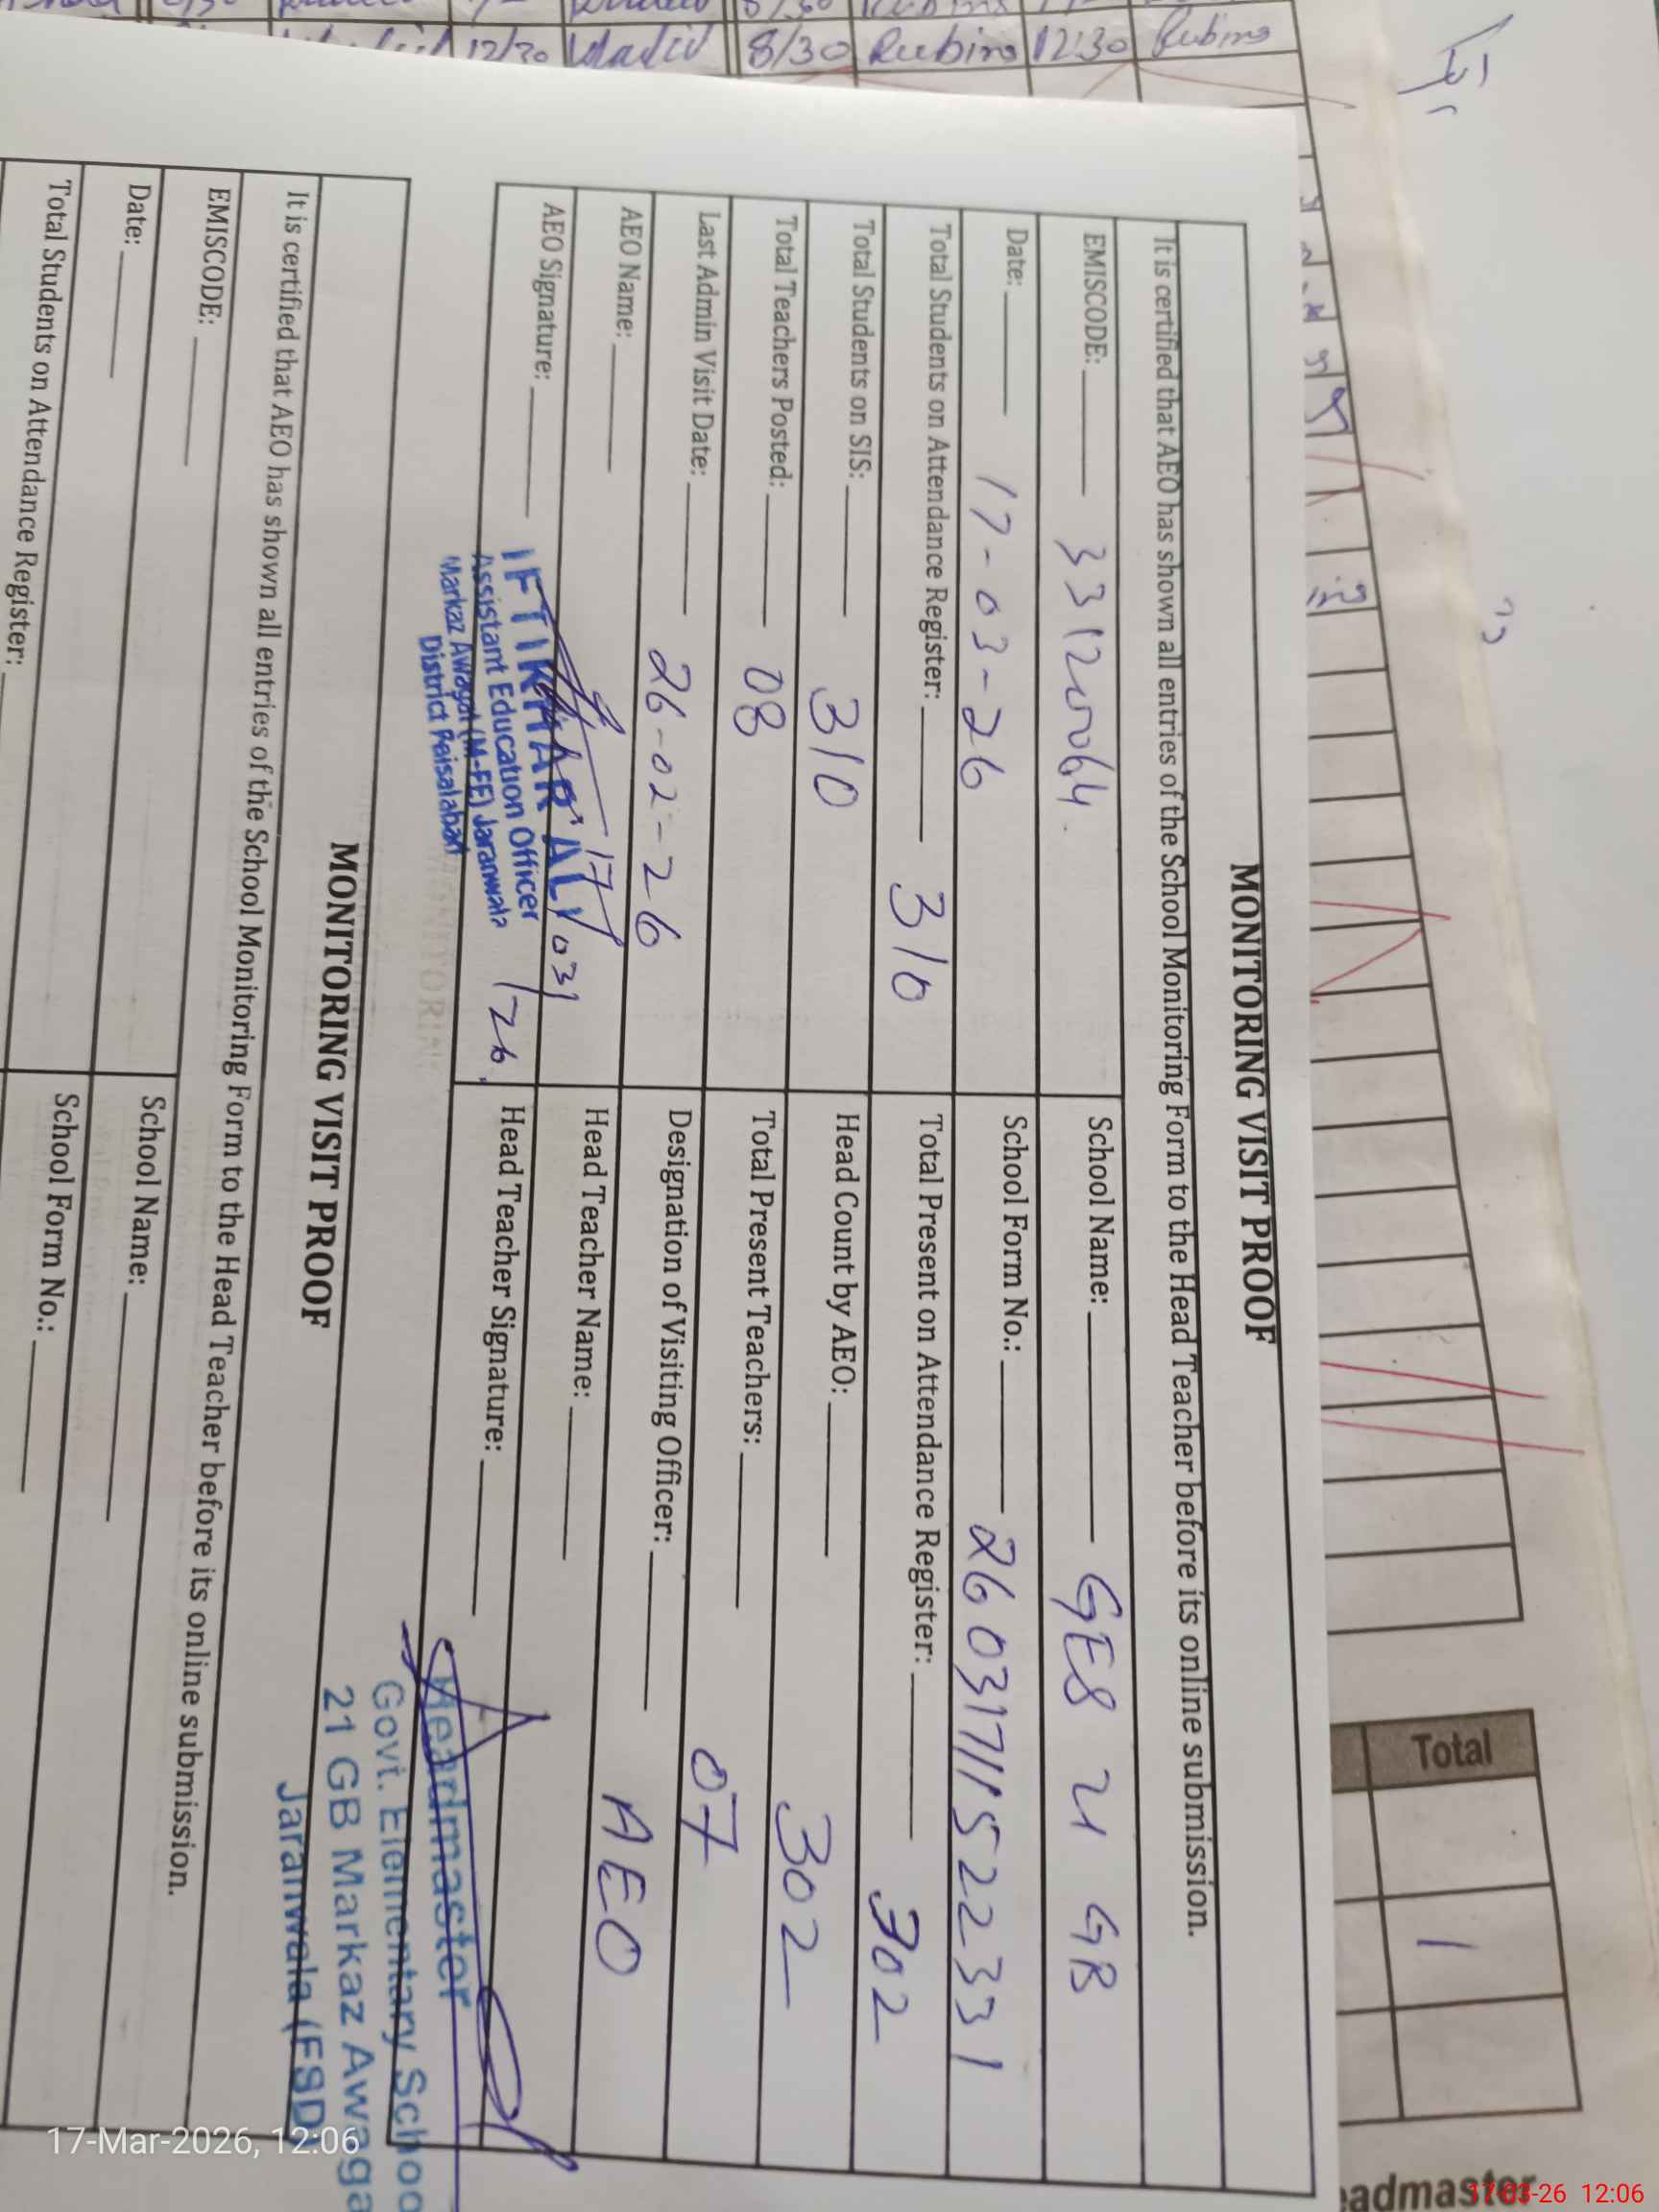 12/30 8/30 Rubina 12:30 Rubina
MONITORING VISIT PROOF
It is certified that AEO has shown all entries of the School Monitoring Form to the Head Teacher before its online submission.
EMISCODE: 33120064 School Name: GES 21 GB
Date: 17-03-26 School Form No.: 26031711522331
Total Students on Attendance Register: 310 Total Present on Attendance Register: 302
Total Students on SIS: 310 Head Count by AEO: 302
Total Teachers Posted: 08 Total Present Teachers: 07
Last Admin Visit Date: 26-02-26 Designation of Visiting Officer: AEO
AEO Name: Head Teacher Name:
AEO Signature: Head Teacher Signature:
17/03/26
IFTIKHAR ALI
Assistant Education Officer
Markaz Awagat (M-EE) Jaranwala
District Faisalabad
Headmaster
Govt. Elementary Schoo
21 GB Markaz Awaga
Jaranwala (FSD)
MONITORING VISIT PROOF
It is certified that AEO has shown all entries of the School Monitoring Form to the Head Teacher before its online submission.
EMISCODE: School Name:
Date: School Form No.:
Total Students on Attendance Register:
Total
1
eadmaster
17-Mar-2026, 12:06
17-03-26 12:06